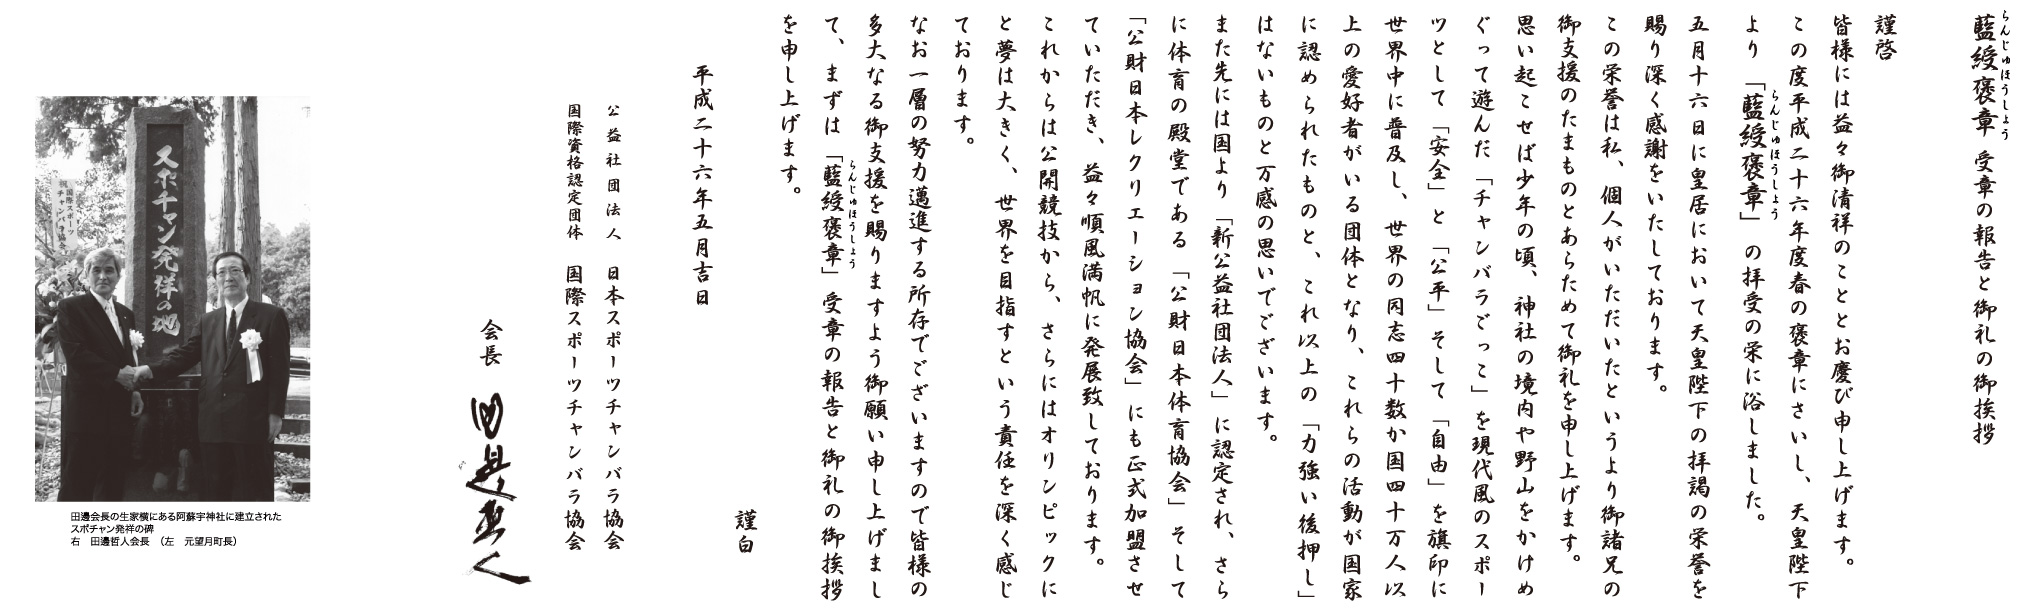 藍綬褒章　受章の報告と御礼の御挨拶
らんじゅほうしょう
謹啓
皆様には益々御清祥のこととお慶び申し上げます。
この度平成二十六年度春の褒章にさいし、天皇陛下
より「藍綬褒章」の拝受の栄に浴しました。
らんじゅほうしょう
五月十六日に皇居において天皇陛下の拝謁の栄誉を
賜り深く感謝をいたしております。
この栄誉は私、個人がいただいたというより御諸兄の
御支援のたまものとあらためて御礼を申し上げます。
思い起こせば少年の頃、神社の境内や野山をかけめ
ぐって遊んだ「チャンバラごっこ」を現代風のスポー
ツとして「安全」と「公平」そして「自由」を旗印に
世界中に普及し、世界の同志四十数か国四十万人以
上の愛好者がいる団体となり、これらの活動が国家
に認められたものと、これ以上の「力強い後押し」
はないものと万感の思いでございます。
また先には国より「新公益社団法人」に認定され、さら
に体育の殿堂である「公財日本体育協会」そして
「公財日本レクリエーション協会」にも正式加盟させ
ていただき、益々順風満帆に発展致しております。
これからは公開競技から、さらにはオリンピックに
と夢は大きく、世界を目指すという責任を深く感じ
ております。
なお一層の努力邁進する所存でございますので皆様の
多大なる御支援を賜りますよう御願い申し上げまし
て、まずは「藍綬褒章」受章の報告と御礼の御挨拶
らんじゅほうしょう
を申し上げます。
謹白
平成二十六年五月吉日
公益社団法人　日本スポーツチャンバラ協会
国際資格認定団体　国際スポーツチャンバラ協会
会長　田邊哲人
スポチャン発祥の地
祝
国際スポーツ
チャンバラ協会
田邊会長の生家横にある阿蘇宇神社に建立された
スポチャン発祥の碑
右　田邊哲人会長　（左　元望月町長）